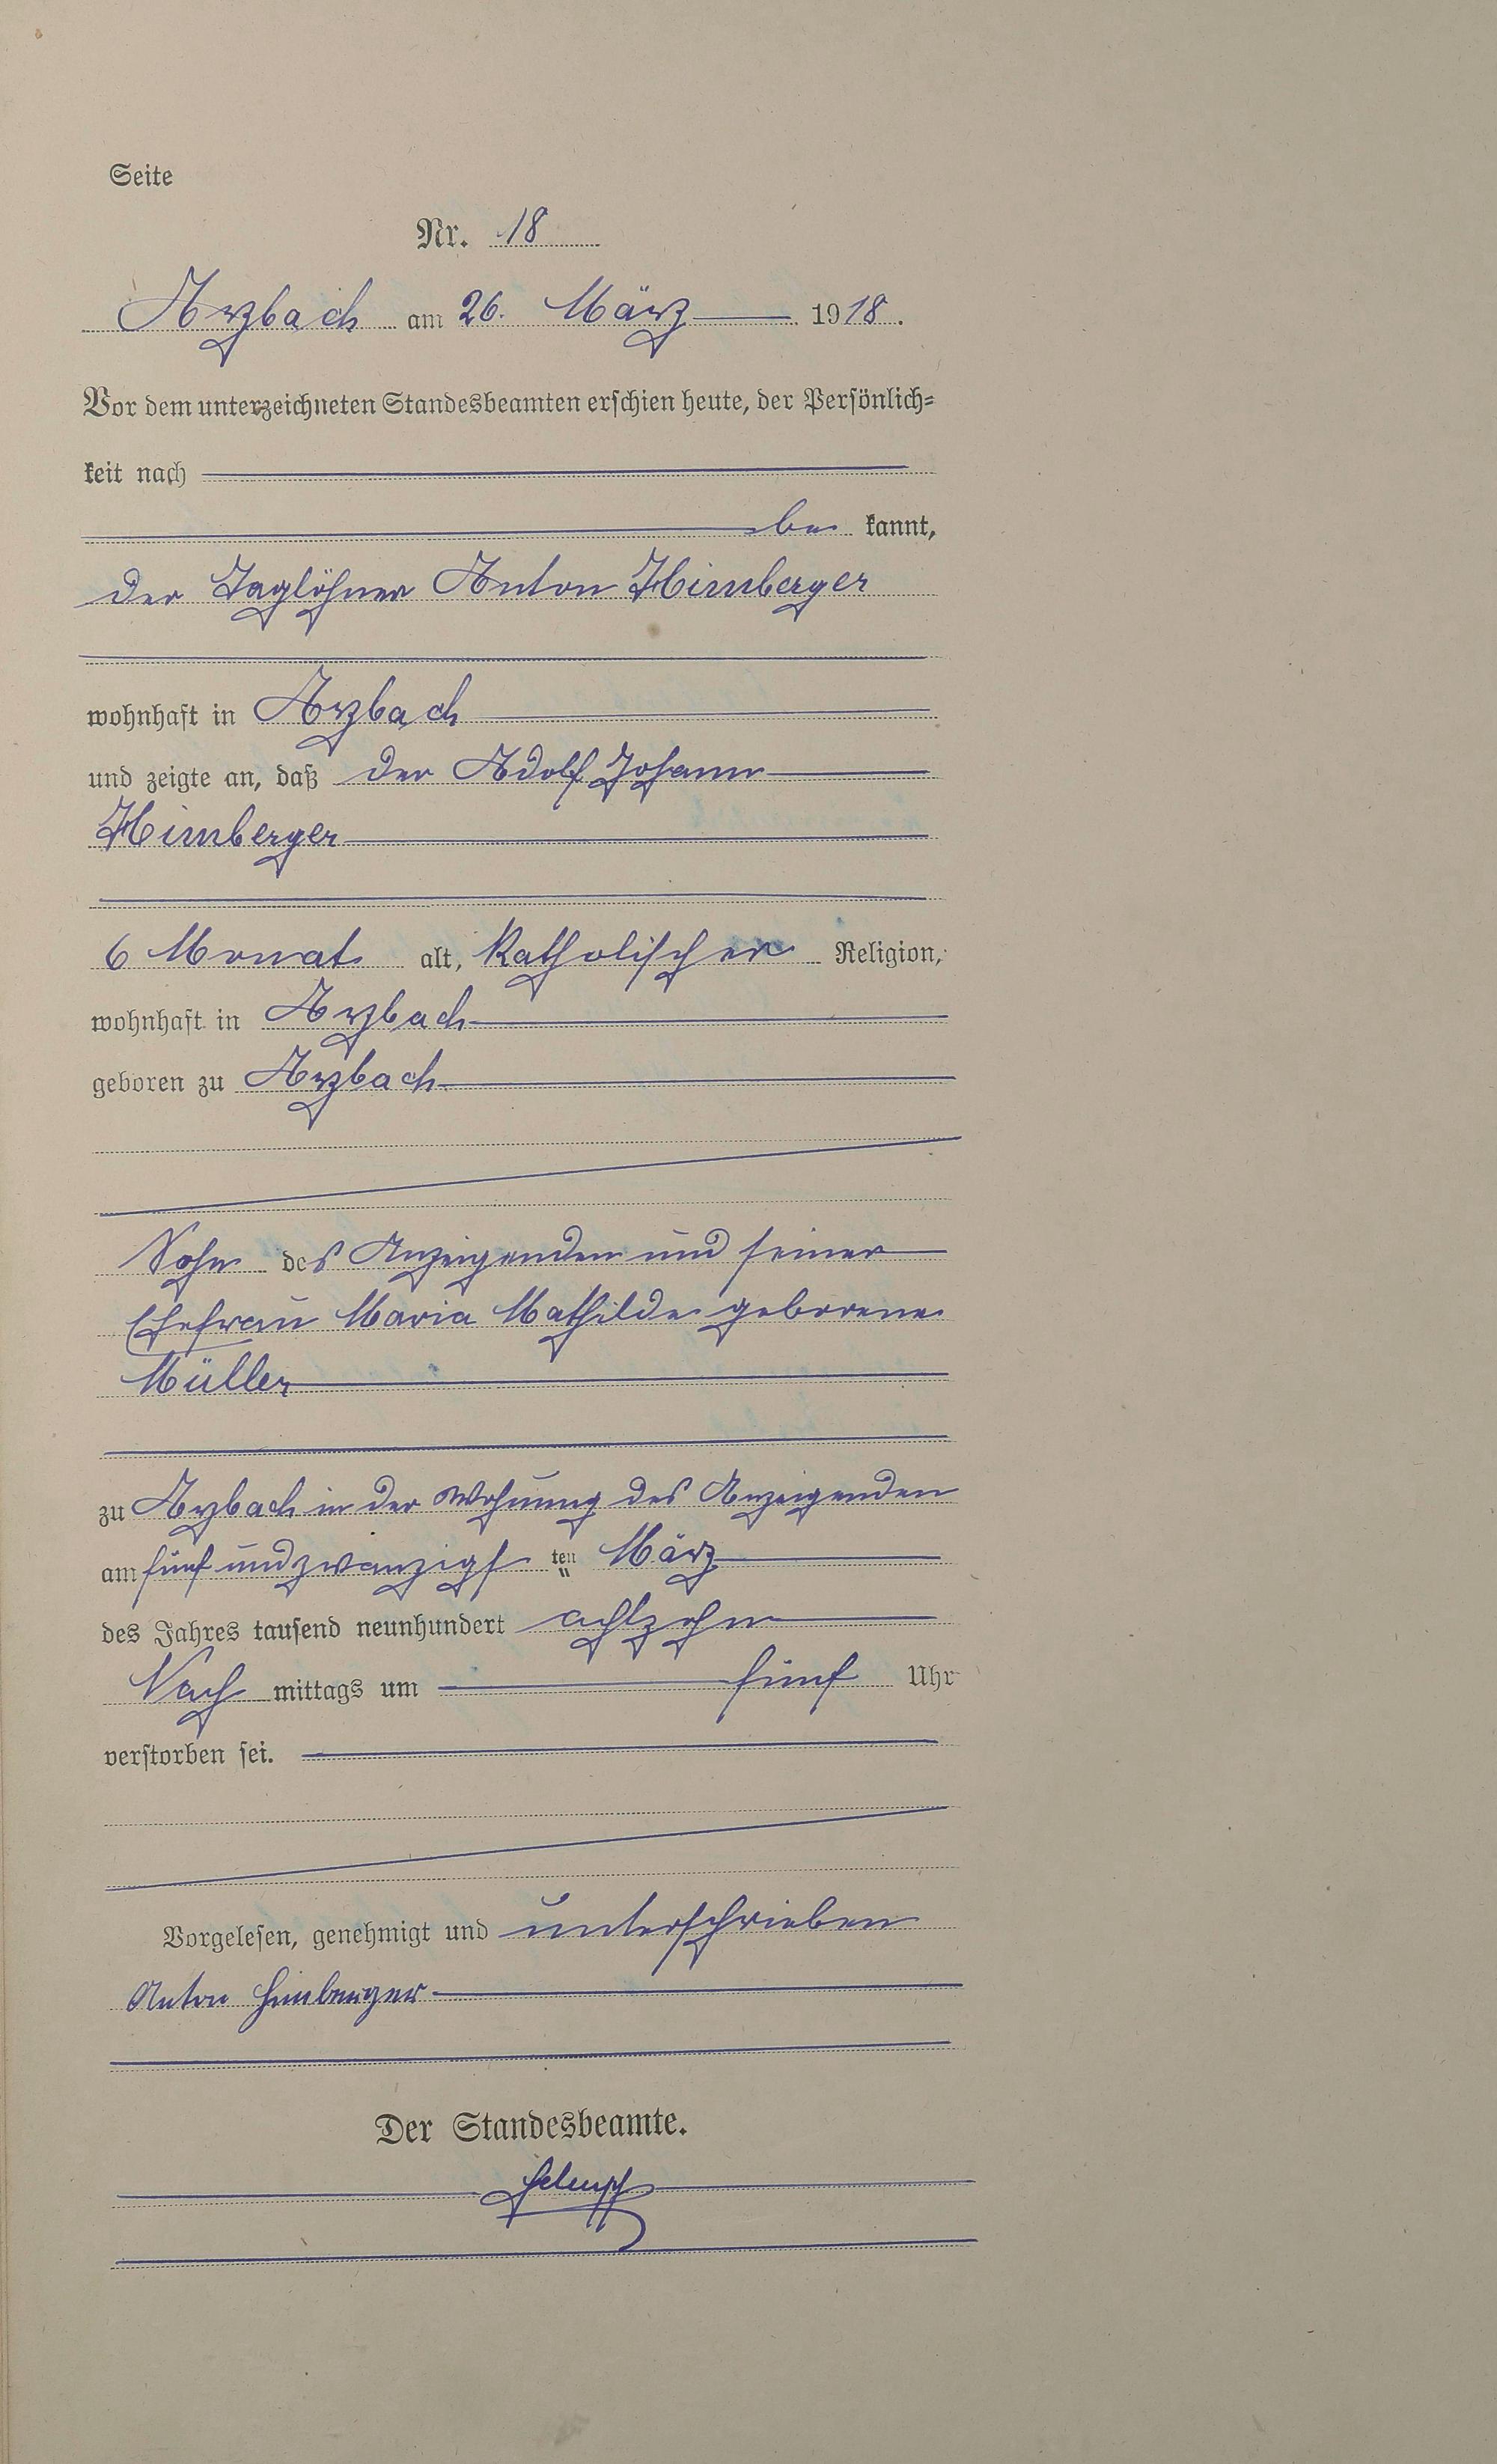 Seite
Nr. 18
Arzbach am 26. März 1918.
Vor dem unterzeichneten Standesbeamten erschien heute, der Persönlich=
keit nach
be kannt,
der Taglöhner Anton Himberger
wohnhaft in Arzbach
und zeigte an, daß der Adolf Johann
Himberger
6 Monate alt, katholischer Religion,
wohnhaft in Arzbach
geboren zu Arzbach
Sohn des Anzeigenden und seiner
Ehefrau Maria Mathilde geborene
Müller
zu Arzbach in der Wohnung des Anzeigenden
am fünf und zwanzigsten März
des Jahres tausend neunhundert achtzehn
Nach mittags um fünf Uhr
verstorben sei.
Vorgelesen, genehmigt und unterschrieben
Anton Himberger
Der Standesbeamte.